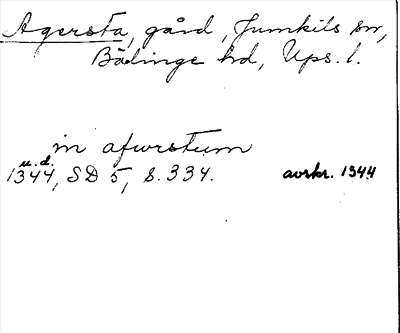 Agersta, gård, Jumkils sn,
Bälinge hd, Ups. l.
in afwrstum
u. d.
1344, SD 5, s. 334. avskr. 1344